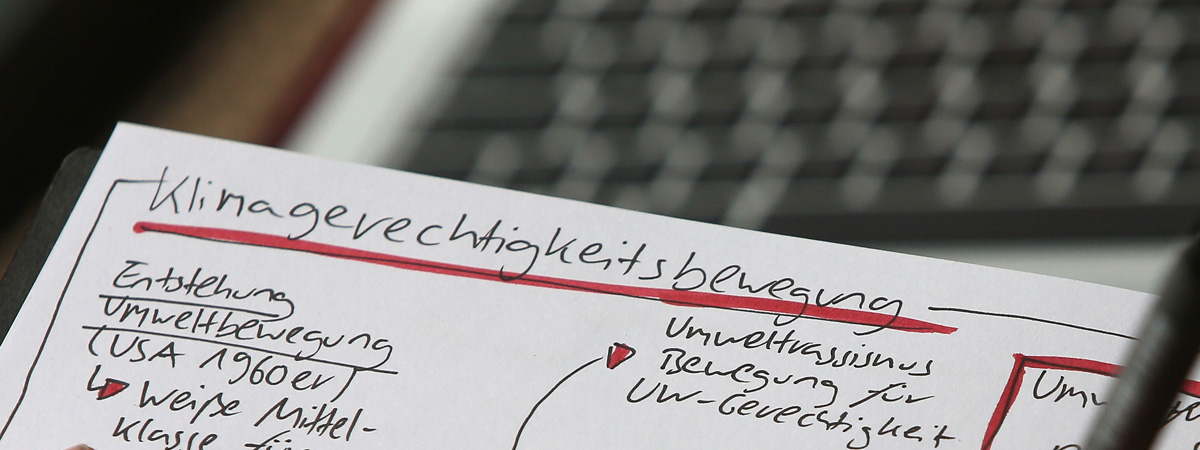 Klimagerechtigkeitsbewegung
Entstehung
Umweltbewegung
(USA 1960er)
Weiße Mittel-
klasse für
Umweltrassismus
Bewegung für
UW-Gerechtigkeit